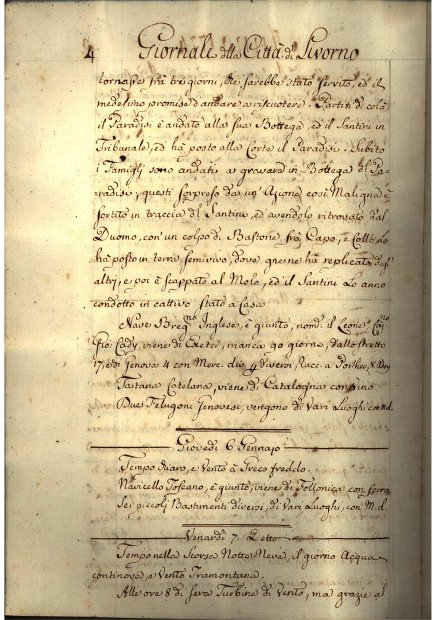 4 Giornale della Città di Livorno
tornasse frà tre giorni, che sarebbe stato servito, ed il
medesimo promise d'andare a riscuotere. Partiti di colà
il Paradisi è andato alla sua Bottega, ed il Santini in
Tribunale, ed hà posto alla Corte il Paradisi. Subito
i Famigli sono andati a gravarlo in Bottega di Pa-
radisi, questi sorpreso da un' Azione così Maligna è
sortito in traccia di Santini, ed avendolo ritrovato dal
Duomo, con' un colpo di Bastone frà Capo, e Collo Lo
hà posto in terra semivivo, dove gnene hà replicato degl'
altri, e poi è scappato al Molo, ed il Santini Lo anno
condotto in cattivo stato a Casa
Nave Inglese, è giunto, nom. il Leone Cap.no
Gio: Cady, viene di Exeter, manca 90 giorni, dallo stretto
17, e di Genova 4 con Merc. div. p diversi, Racc. a
Tartana Catelana, viene di Catalogna con vino
Due Felugoni Genovesi, vengono di Vari Luoghi con m.d.
Giovedì 6 Gennajo
Tempo chiaro, e Vento à Greco freddo.
Navicello Toscano, è giunto, viene di Follonica con ferro
Sei piccoli Bastimenti diversi, di Vari Luoghi, con M. d.
Venardì 7. Detto
Tempo nella Scorsa Notte Neva, il giorno Acqua
continova, e Vento Tramontana.
Alle ore 8 di sera Turbine di Vento, ma grazie al